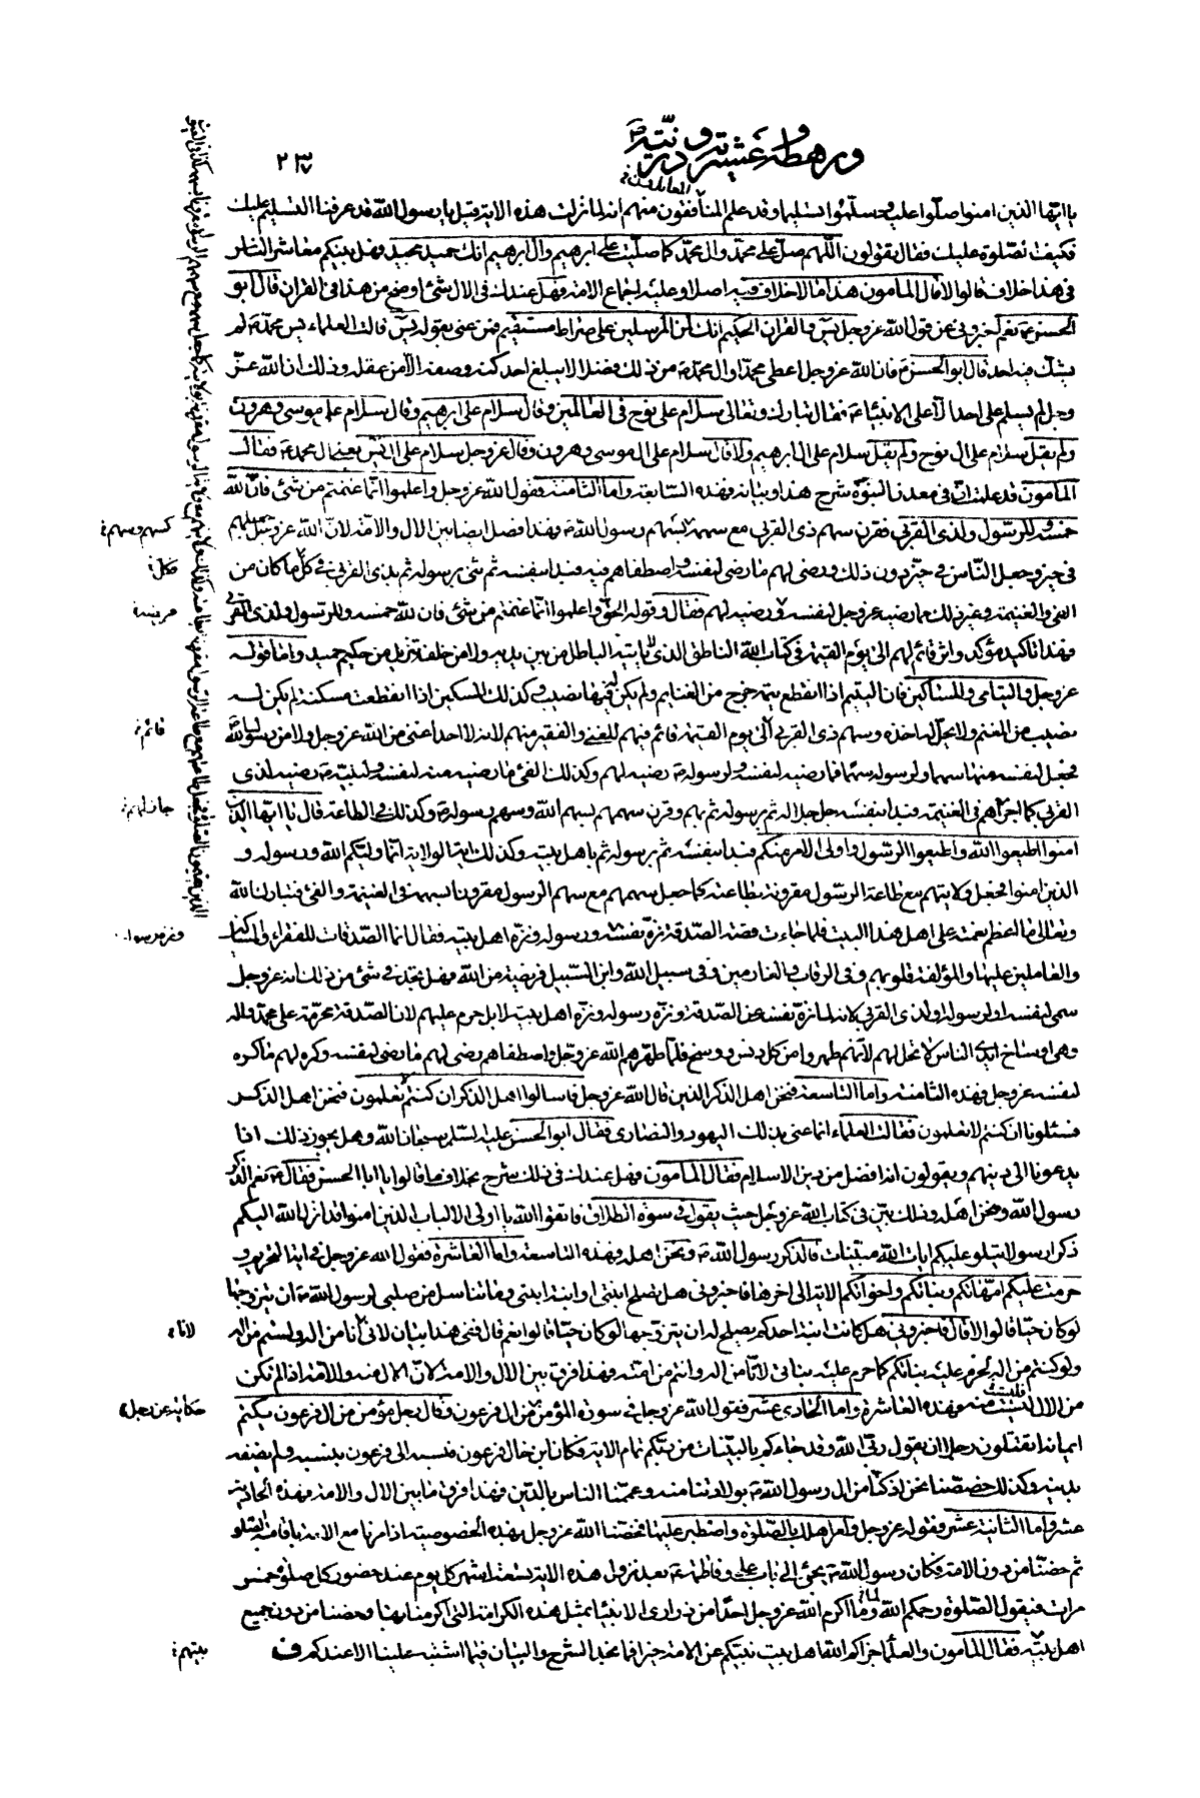 ورهطه وعشيرته وذريته
٢٣٧
يا ايها الذين امنوا صلوا عليه وسلموا تسليما وقد علم المنافقون منهم انه لما نزلت هذه الاية قيل يا رسول الله قد عرفنا التسليم عليك
فكيف الصلوة عليك فقال تقولون اللهم صل على محمد وال محمد كما صليت على ابرهيم وال ابرهيم انك حميد مجيد فهل بينكم معاشر الناس
فى هذا خلاف قالوا لا قال المامون هذا ما لا خلاف فيه اصلا وعليه اجماع الامة فهل عندك فى الال شئ اوضح من هذا فى القران قال ابو
الحسن نعم اخبرونى عن قول الله عز وجل يس والقران الحكيم انك لمن المرسلين على صراط مستقيم فمن عنى بقوله يس قالت العلماء يس محمد لم
يشك فيه احد قال ابو الحسن فان الله عز وجل اعطى محمدا وال محمد من ذلك فضلا لا يبلغ احد كنه وصفه الا من عقله وذلك ان الله عز
وجل لم يسلم على احد الا على الانبياء فقال تبارك وتعالى سلام على نوح فى العالمين وقال سلام على ابرهيم وقال سلام على موسى وهرون
ولم يقل سلام على ال نوح ولم يقل سلام على ال ابرهيم ولا قال سلام على ال موسى وهرون وقال عز وجل سلام على ال يس يعنى ال محمد فقال
المامون قد علمت ان فى معدن النبوة شرح هذا وبيانه فهذه السابعة واما الثامنة فقول الله عز وجل واعلموا انما غنمتم من شئ فان لله
خمسه وللرسول ولذى القربى فقرن سهم ذى القربى مع سهمه بسهم رسول الله فهذا فضل ايضا بين الال والامة لان الله عز وجل جعلهم
فى حيز وجعل الناس فى حيز دون ذلك ورضى لهم ما رضى لنفسه واصطفاهم فيه فبدا بنفسه ثم ثنى برسوله ثم بذى القربى فى كل ما كان من
الفئ والغنيمة وغير ذلك مما رضيه عز وجل لنفسه ورضيه لهم فقال وقوله الحق واعلموا انما غنمتم من شئ فان لله خمسه وللرسول ولذى القربى
فهذا تاكيد مؤكد واثر قائم لهم الى يوم القيمة فى كتاب الله الناطق الذى لا ياتيه الباطل من بين يديه ولا من خلفه تنزيل من حكيم حميد واما قوله
عز وجل واليتامى والمساكين فان اليتيم اذا انقطع يتمه خرج من الغنايم ولم يكن له فيها نصيب وكذلك المسكين اذا انقطعت مسكنته لم يكن له
نصيب من المغنم ولا يحل له اخذه وسهم ذى القربى الى يوم القيمة قائم فيهم للغنى والفقير منهم لانه لا احد اغنى من الله عز وجل ولا من رسول الله
فجعل لنفسه منها سهما ولرسوله سهما فما رضيه لنفسه ولرسوله رضيه لهم وكذلك الفئ ما رضيه منه لنفسه ولنبيه رضيه لذى
القربى كما اجراهم فى الغنيمة فبدا بنفسه جل جلاله ثم برسوله ثم بهم وقرن سهمهم بسهم الله وسهم رسوله وكذلك فى الطاعة قال يا ايها الذين
امنوا اطيعوا الله واطيعوا الرسول واولى الامر منكم فبدا بنفسه ثم برسوله ثم باهل بيته وكذلك اية الولاية انما وليكم الله ورسوله و
الذين امنوا فجعل ولايتهم مع طاعة الرسول مقرونة بطاعته كما جعل سهمهم مع سهم الرسول مقرونا بسهمه فى الغنيمة والفئ فتبارك الله
وتعالى ما اعظم نعمته على اهل هذا البيت فلما جاءت قصة الصدقة نزه نفسه ورسوله ونزه اهل بيته فقال انما الصدقات للفقراء والمساكين
والعاملين عليها والمؤلفة قلوبهم وفى الرقاب والغارمين وفى سبيل الله وابن السبيل فريضة من الله فهل تجد فى شئ من ذلك انه عز وجل
سمى لنفسه او لرسوله او لذى القربى لانه لما نزه نفسه عن الصدقة ونزه رسوله ونزه اهل بيته لا بل حرم عليهم لان الصدقة محرمة على محمد واله
وهى اوساخ ايدى الناس لا تحل لهم لانهم طهروا من كل دنس ووسخ فلما طهرهم الله عز وجل واصطفاهم رضى لهم ما رضى لنفسه وكره لهم ما كره
لنفسه عز وجل فهذه الثامنة واما التاسعة فنحن اهل الذكر الذين قال الله عز وجل فاسالوا اهل الذكر ان كنتم لا تعلمون فنحن اهل الذكر
فسئلونا ان كنتم لا تعلمون فقالت العلماء انما عنى بذلك اليهود والنصارى فقال ابو الحسن عليه السلام سبحان الله وهل يجوز ذلك اذا
يدعونا الى دينهم ويقولون انه افضل من دين الاسلام فقال المامون فهل عندك فى ذلك شرح بخلاف ما قالوا يا ابا الحسن فقال نعم الذكر
رسول الله ونحن اهله وذلك بين فى كتاب الله عز وجل حيث يقول فى سورة الطلاق فاتقوا الله يا اولى الالباب الذين امنوا قد انزل الله اليكم
ذكرا رسولا يتلو عليكم ايات الله مبينات فالذكر رسول الله ونحن اهله فهذه التاسعة واما العاشرة فقول الله عز وجل فى اية التحريم
حرمت عليكم امهاتكم وبناتكم واخواتكم الاية الى اخرها فاخبرونى هل تصلح ابنتى او ابنة ابنتى وما تناسل من صلبى لرسول الله ان يتزوجها
لو كان حيا قالوا لا قال فاخبرونى هل كانت ابنة احدكم يصلح له ان يتزوجها لو كان حيا قالوا نعم قال ففى هذا بيان لانى انا من اله ولستم من اله
ولو كنتم من اله لحرم عليه بناتكم كما حرم عليه بناتى لانا من اله وانتم من امته فهذا فرق بين الال والامة لان الال منه والامة اذا لم تكن
من الال فليست منه فهذه العاشرة واما الحادى عشر فقول الله عز وجل فى سورة المؤمن عن ال فرعون وقال رجل مؤمن من ال فرعون يكتم
ايمانه اتقتلون رجلا ان يقول ربى الله وقد جاءكم بالبينات من ربكم تمام الاية فكان ابن خال فرعون فنسبه الى فرعون بنسبه ولم يضفه
بدينه وكذلك خصصنا نحن اذ كنا من ال رسول الله بولادتنا منه وعممنا الناس بالدين فهذا فرق ما بين الال والامة فهذه الحادية
عشر واما الثانية عشر فقوله عز وجل وامر اهلك بالصلوة واصطبر عليها فخصنا الله عز وجل بهذه الخصوصية اذ امرنا مع الامة باقامة الصلوة
ثم خصنا من دون الامة فكان رسول الله يجئ الى باب على وفاطمة بعد نزول هذه الاية تسعة اشهر كل يوم عند حضور كل صلوة خمس
مرات فيقول الصلوة رحمكم الله وما اكرم الله عز وجل احدا من ذرارى الانبياء بمثل هذه الكرامة التى اكرمنا بها وخصنا من دون جميع
اهل بيته فقال المامون والعلماء جزاكم الله اهل بيت نبيكم عن الامة خيرا فما نجد الشرح والبيان فيما اشتبه علينا الا عندكم ف
كسهم وسهم
فكل
قائم
جاز لهم
لانا
حكاية عن رجل
بيتهم